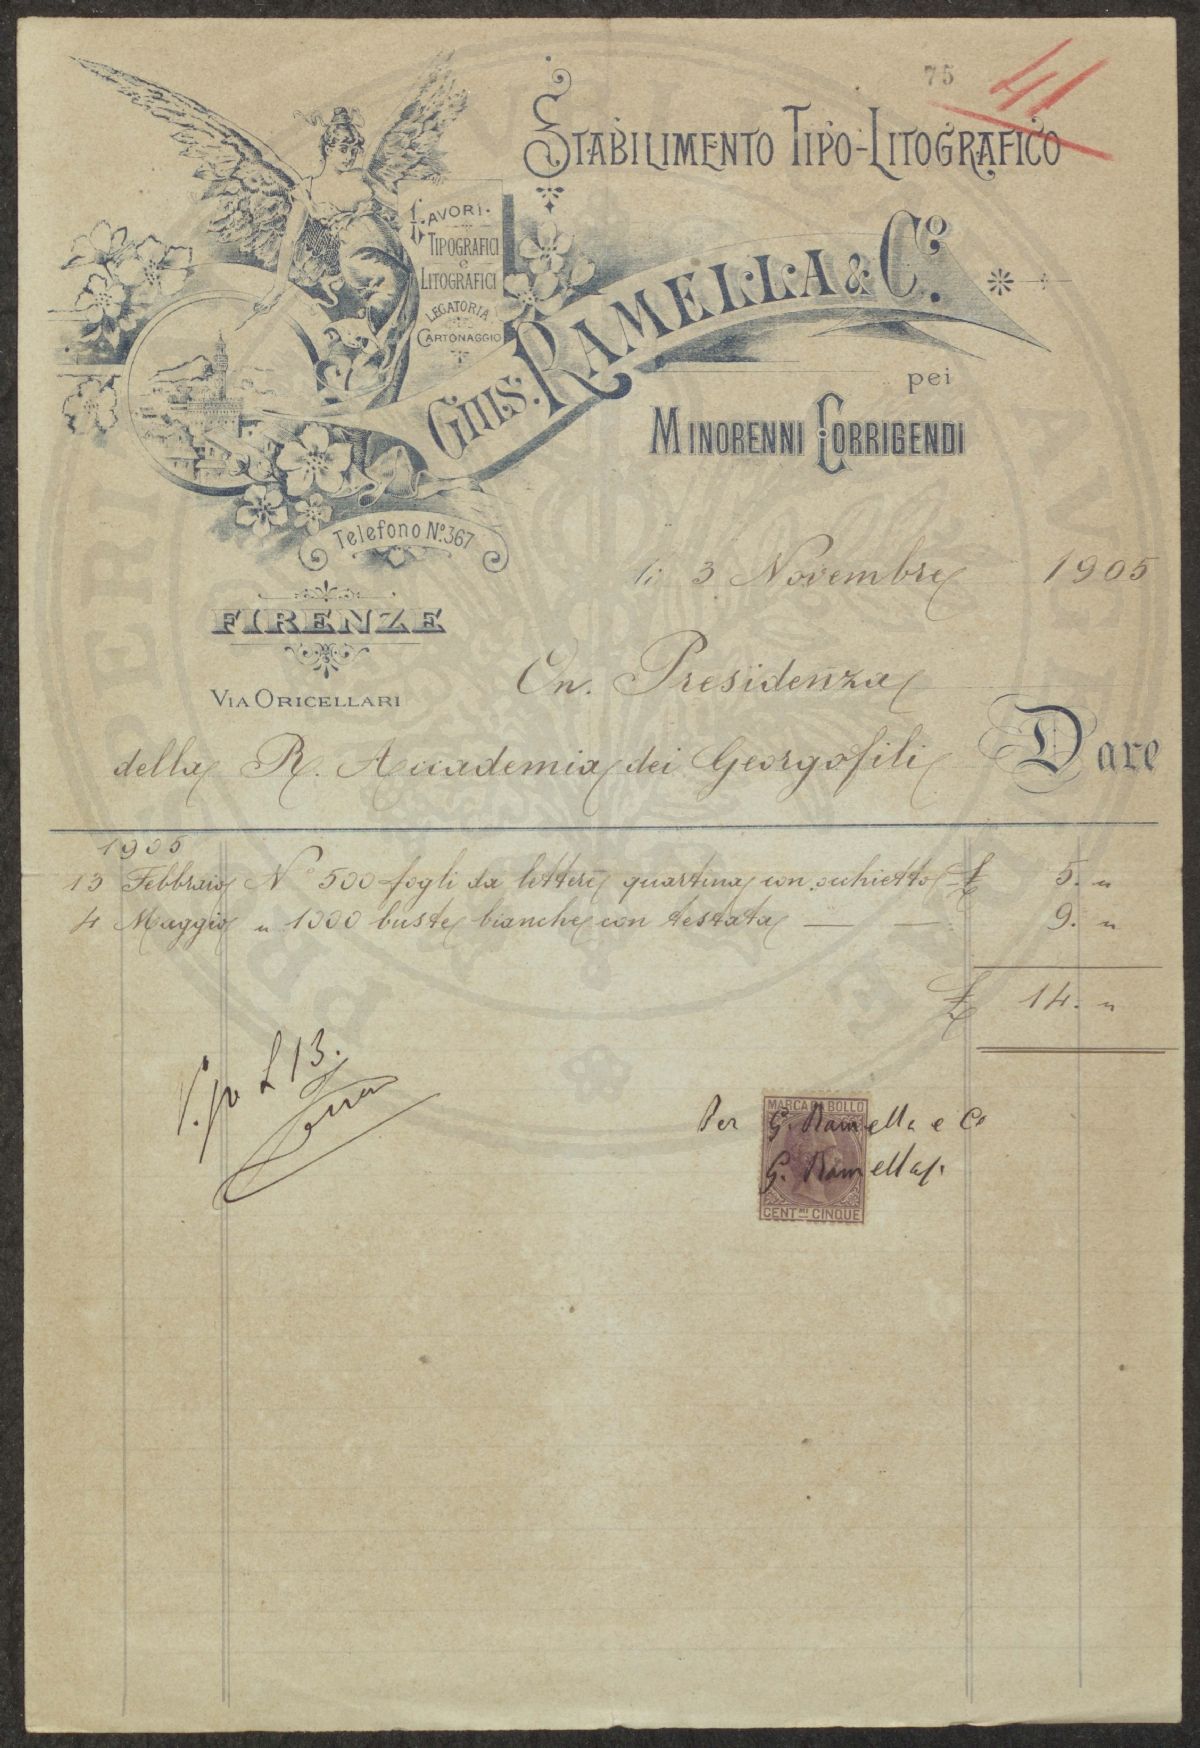 75
41
STABILIMENTO TIPO-LITOGRAFICO
LAVORI
TIPOGRAFICI
e
LITOGRAFICI
LEGATORIA
CARTONAGGIO
GIUS. RAMELLA & Cº.
pei
MINORENNI CORRIGENDI
Telefono Nº 367
FIRENZE
VIA ORICELLARI
li 3 Novembre 1905
On. Presidenza
della R. Accademia dei Georgofili
Dare
1905
13 Febbraio Nº 500 fogli da lettere quartina con occhietto £ 5. "
4 Maggio " 1000 buste bianche con testata — — 9. "
£ 14. "
L 13.
MARCA DA BOLLO
Per G. Ramella e Co
G. Ramella
CENT.MI CINQUE